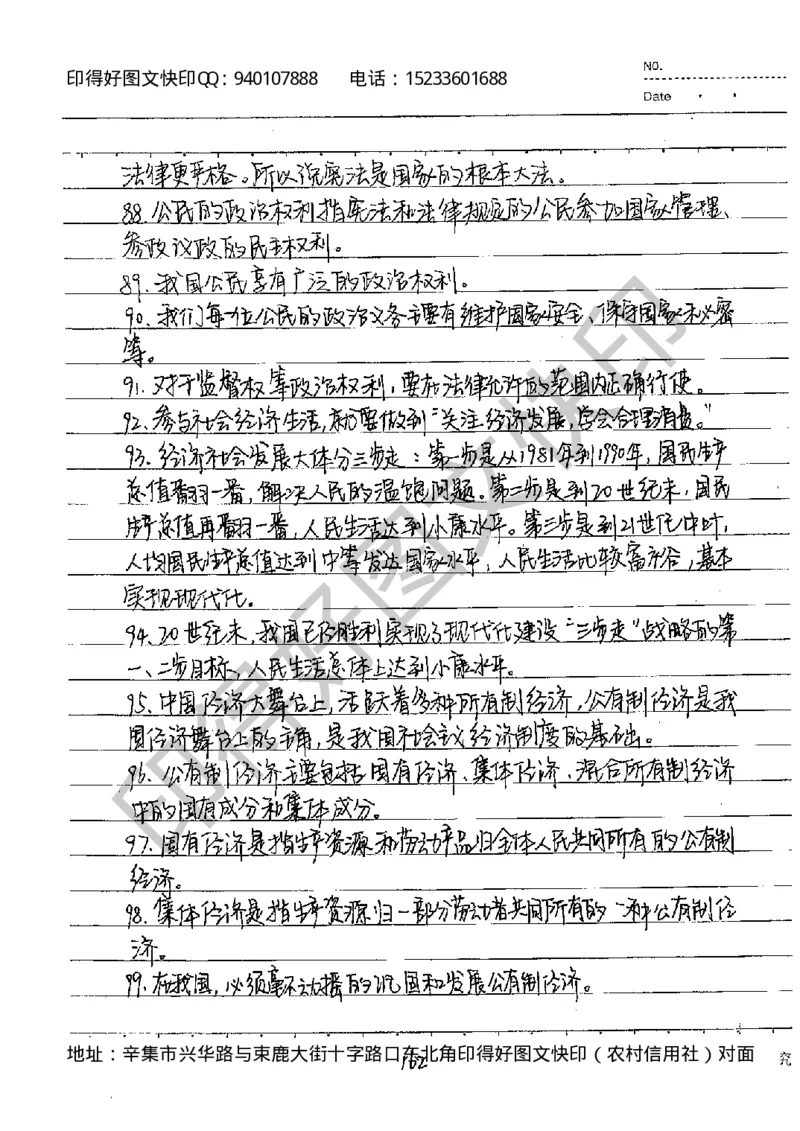 NO.
印得好图文快印QQ：940107888 电话：15233601688
Date
法律更严格。所以说宪法是国家的根本大法。
88.公民的政治权利指宪法和法律规定的公民参加国家管理、
参政议政的民主权利。
89.我国公民享有广泛的政治权利。
90.我们每位公民的政治义务主要有维护国家安全、保守国家秘密
等。
91.对于监督权等政治权利，要在法律允许的范围内正确行使。
92.参与社会经济生活，就要做到“关注经济发展，学会合理消费。”
93.经济社会发展大体分三步走：第一步是从1981年到1990年，国民生产
总值翻一番，解决人民的温饱问题。第二步是到20世纪末，国民
生产总值再翻一番，人民生活达到小康水平。第三步是到21世纪中叶，
人均国民生产总值达到中等发达国家水平，人民生活比较富裕，基本
实现现代化。
94.20世纪末，我国已经胜利实现了现代化建设“三步走”战略的第
一、二步目标，人民生活总体上达到小康水平。
95.中国经济大舞台上，活跃着多种所有制经济，公有制经济是我
国经济舞台上的主角，是我国社会主义经济制度的基础。
96.公有制经济主要包括国有经济、集体经济、混合所有制经济
中的国有成分和集体成分。
97.国有经济是指生产资源和劳动产品归全体人民共同所有的公有制
经济。
98.集体经济是指生产资源归一部分劳动者共同所有的一种公有制经
济。
99.在我国，必须毫不动摇的巩固和发展公有制经济。
地址：辛集市兴华路与束鹿大街十字路口东北角印得好图文快印（农村信用社）对面
102
究
印得好图文快印